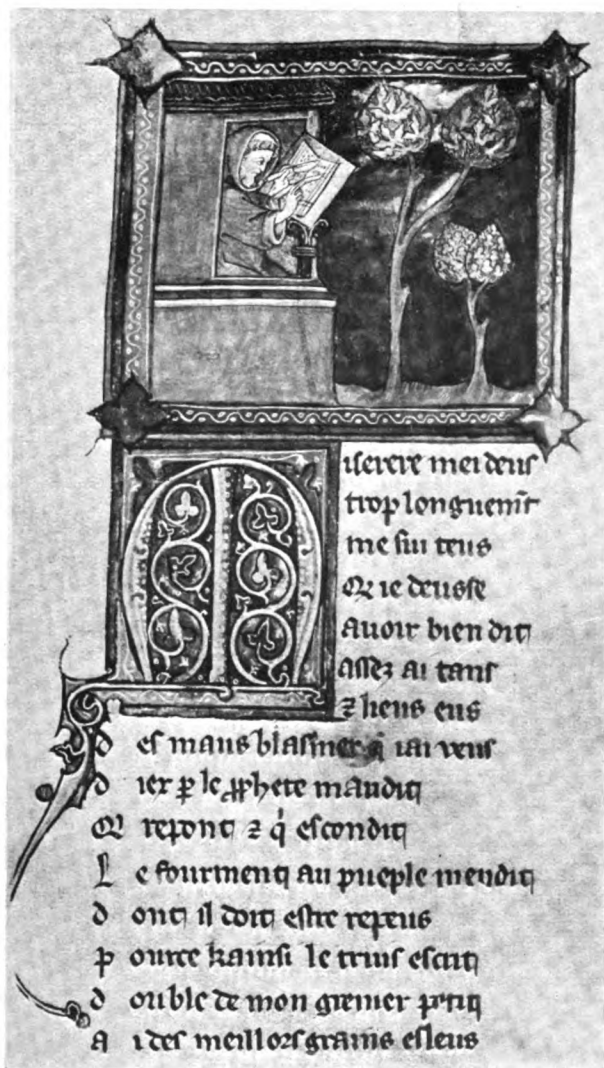 Miserere mei deus
trop longuem̄t
me sui teus
Q ie deusse
auoir bien dit
assez ai tans
⁊ lieus eus
d es maus blasmer q̇ iai veus
d iex ꝑ le ꝓphete maudit
Q repont ⁊ q̇ escondit
L e fourment au pueple mendit
d ont il doit estre repeus
p ource kainsi le truis escrit
d ouble de mon grenier p'tit
a i des meillors grains esleus